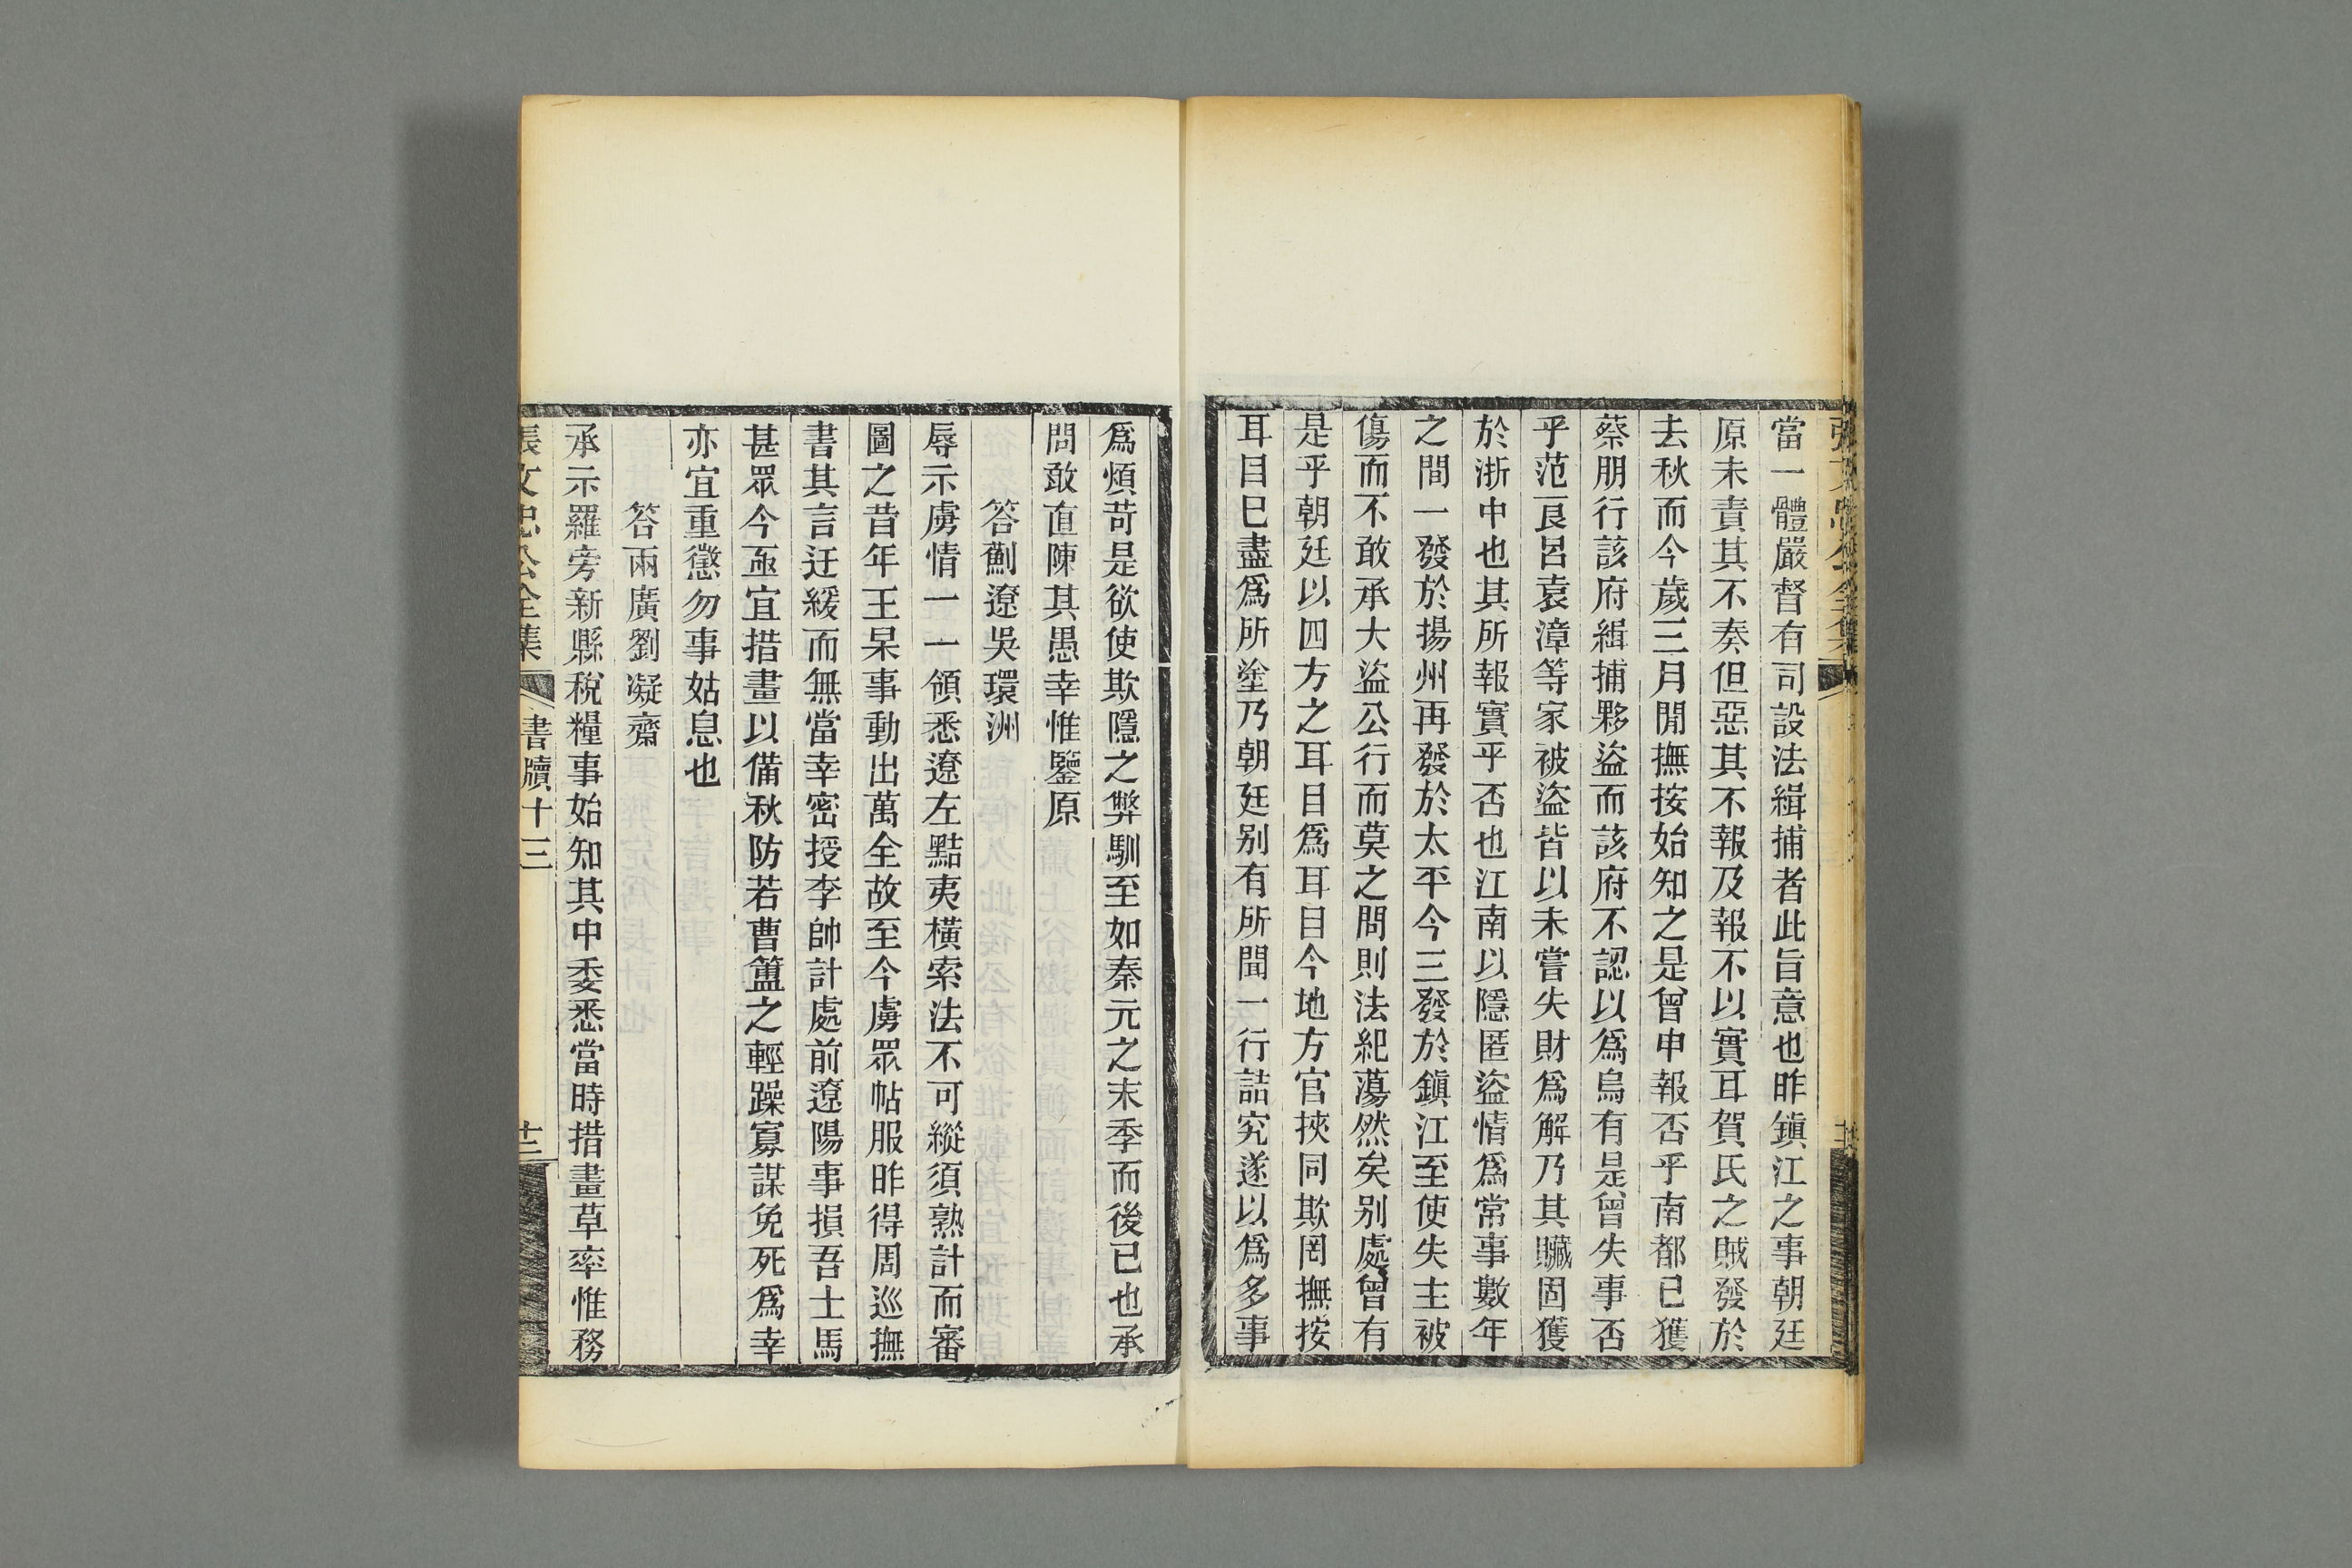 當一體嚴督有司設法緝捕者此旨意也昨鎭江之事朝廷
原未責其不奏但惡其不報及報不以實耳賀氏之賊發於
去秋而今歲三月閒撫按始知之是曾申報否乎南都已獲
蔡朋行該府緝捕夥盜而該府不認以爲烏有是曾失事否
乎范艮呂袁漳等家被盜皆以未嘗失財爲解乃其贓固獲
於浙中也其所報實乎否也江南以隱匿盜情爲常事數年
之間一發於揚州再發於太平今三發於鎭江至使失主被
傷而不敢承大盜公行而莫之問則法紀蕩然矣别處曾有
是乎朝廷以四方之耳目爲耳目今地方官挾同欺罔撫按
耳目巳盡爲所塗乃朝廷别有所聞一行詰究遂以爲多事
爲煩苛是欲使欺隱之弊馴至如秦元之末季而後已也承
問敢直陳其愚幸惟鑒原
答薊遼吳環洲
辱示虜情一一領悉遼左黠夷橫索法不可縱須熟計而審
圖之昔年王杲事動出萬全故至今虜眾帖服昨得周巡撫
書其言迂緩而無當幸密授李帥計處前遼陽事損吾士馬
甚眾今亟宜措畫以備秋防若曹簠之輕躁寡謀免死爲幸
亦宜重懲勿事姑息也
答兩廣劉凝齋
承示羅旁新縣稅糧事始知其中委悉當時措畫草率惟務
張文忠公全集 書牘十三